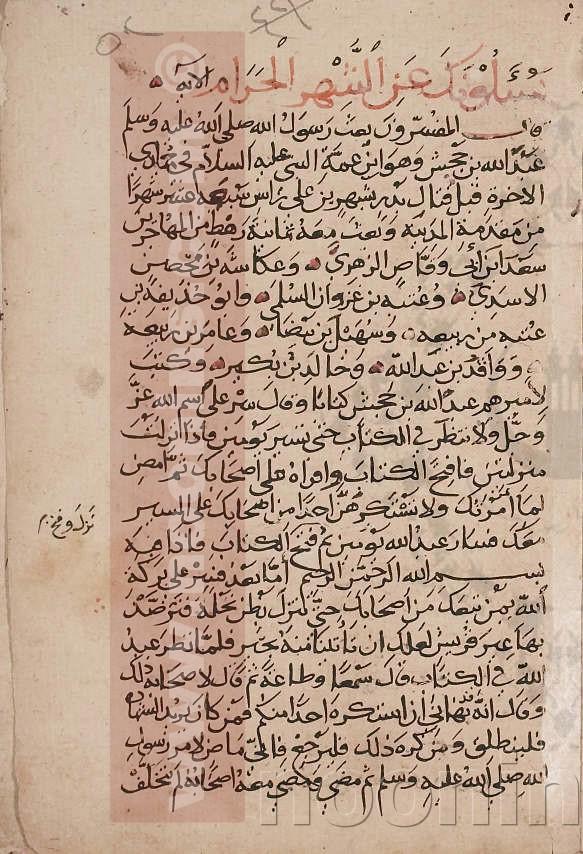 يسئلونك عن الشهر الحرام الاية
قال المفسرون بعث رسول الله صلى الله عليه وسلم
عبد الله بن جحش وهو ابن عمة النبي عليه السلام في جمادى
الاخرة قبل قتال بدر بشهرين على راس سبعة عشر شهرا
من مقدمه المدينة وبعث معه ثمانية رهط من المهاجرين
سعد ابن ابي وقاص الزهري وعكاشة بن محصن
الاسدي وعتبة بن غزوان السلمي وابو حذيفة بن
عتبة بن ربيعة وسهيل بن بيضا وعامر بن ربيعة
وواقد بن عبد الله وخالد بن بكير وكتب
لاميرهم عبد الله بن جحش كتابا وقال سر على اسم الله عز
وجل ولا تنظر في الكتاب حتى تسير يومين فاذا نزلت
منزلين فافتح الكتاب واقراه على اصحابك ثم امض
لما امرتك ولا تستكرهن احدا من اصحابك على السير
معك فسار عبد الله يومين ثم فتح الكتاب فاذا فيه
بسم الله الرحمن الرحيم اما بعد فسر على بركة
الله بمن تبعك من اصحابك حتى تنزل بطن نخلة فترصد
بها عير قريش لعلك ان تاتينا منه بخير فلما نظر عبد
الله في الكتاب قال سمعا وطاعة ثم قال لاصحابه ذلك
وقال انه قد نهاني ان استكره احدا منكم فمن كان يريد الشهادة
فلينطلق ومن كره ذلك فليرجع فاني ماض لامر رسول
الله صلى الله عليه وسلم ثم مضى ومضى معه اصحابه لم يتخلف
نزل وفتح
noonin